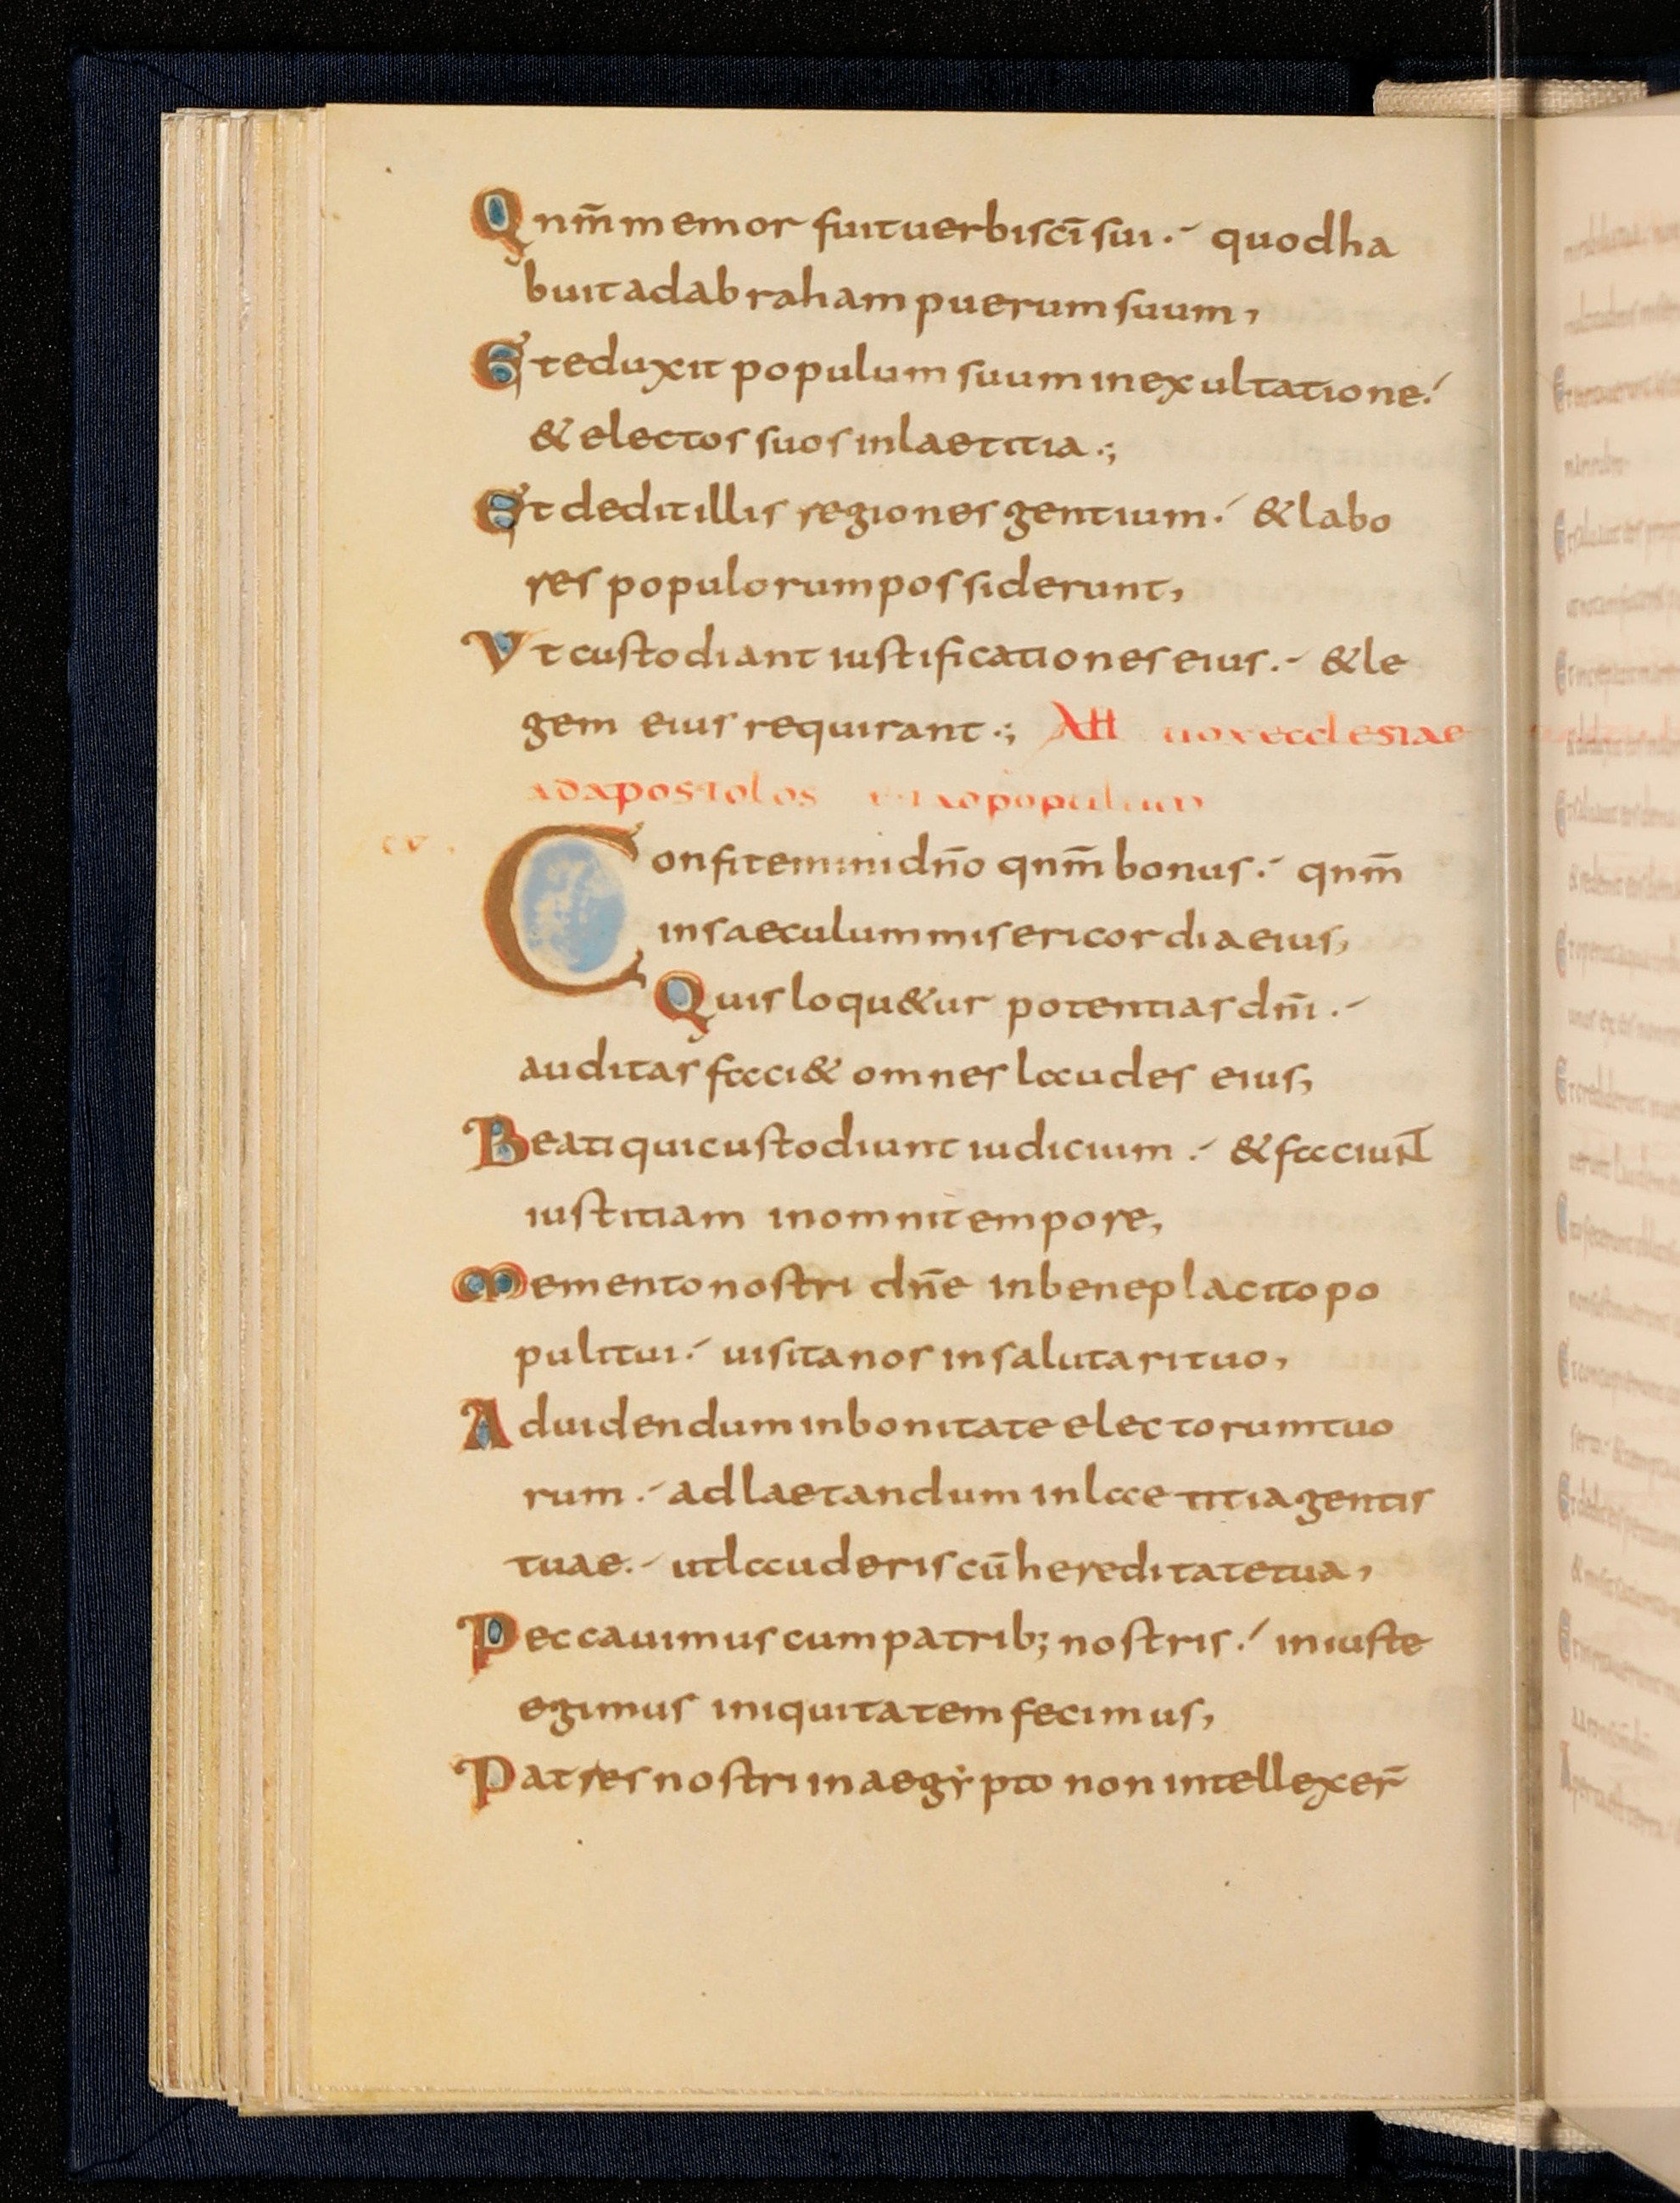 Qnm̄ memor fuit uerbi sc̄i sui .- quod ha
buit ad abraham puerum suum,
Et eduxit populum suum in exultatione ./
& electos suos in laetitia .;
Et dedit illis regiones gentium ./ & labo
res populorum possiderunt,
Vt custodiant iustificationes eius .- & le
gem eius requirant .; All uox ecclesiae
ad apostolos populum
cv .
Confitemini dn̄o qnm̄ bonus ./ qnm̄
in saeculum misericordia eius,
Quis loqu&ur potentias dn̄i .-
auditas faci& omnes laudes eius,
Beati qui custodiunt iudicium .- & faciunt
iustitiam in omni tempore,
Memento nostri dn̄e in beneplacito po
puli tui ./ uisita nos in salutari tuo,
Ad uidendum in bonitate electorum tuo
rum .- ad laetandum in laetitia gentis
tuae .- ut lauderis cū hereditate tua,
Peccauimus cum patrib; nostris ./ iniuste
egimus iniquitatem fecimus,
Patres nostri in aegẏpto non intellexer̄